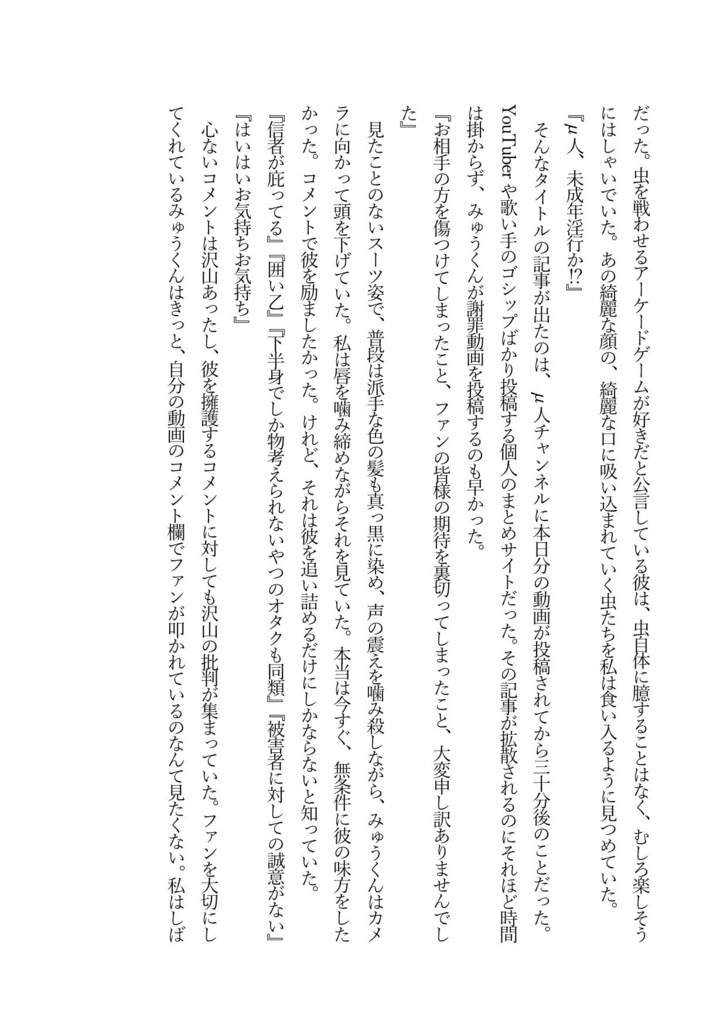 だった。虫を戦わせるアーケードゲームが好きだと公言している彼は、虫自体に臆することはなく、むしろ楽しそう
にはしゃいでいた。あの綺麗な顔の、綺麗な口に吸い込まれていく虫たちを私は食い入るように見つめていた。
『μ人、未成年淫行か⁉』
　そんなタイトルの記事が出たのは、μ人チャンネルに本日分の動画が投稿されてから三十分後のことだった。
YouTuberや歌い手のゴシップばかり投稿する個人のまとめサイトだった。その記事が拡散されるのにそれほど時間
は掛からず、みゅうくんが謝罪動画を投稿するのも早かった。
『お相手の方を傷つけてしまったこと、ファンの皆様の期待を裏切ってしまったこと、大変申し訳ありませんでし
た』
　見たことのないスーツ姿で、普段は派手な色の髪も真っ黒に染め、声の震えを噛み殺しながら、みゅうくんはカメ
ラに向かって頭を下げていた。私は唇を噛み締めながらそれを見ていた。本当は今すぐ、無条件に彼の味方をした
かった。コメントで彼を励ましたかった。けれど、それは彼を追い詰めるだけにしかならないと知っていた。
『信者が庇ってる』『囲い乙』『下半身でしか物考えられないやつのオタクも同類』『被害者に対しての誠意がない』
『はいはいお気持ちお気持ち』
　心ないコメントは沢山あったし、彼を擁護するコメントに対しても沢山の批判が集まっていた。ファンを大切にし
てくれているみゅうくんはきっと、自分の動画のコメント欄でファンが叩かれているのなんて見たくない。私はしば